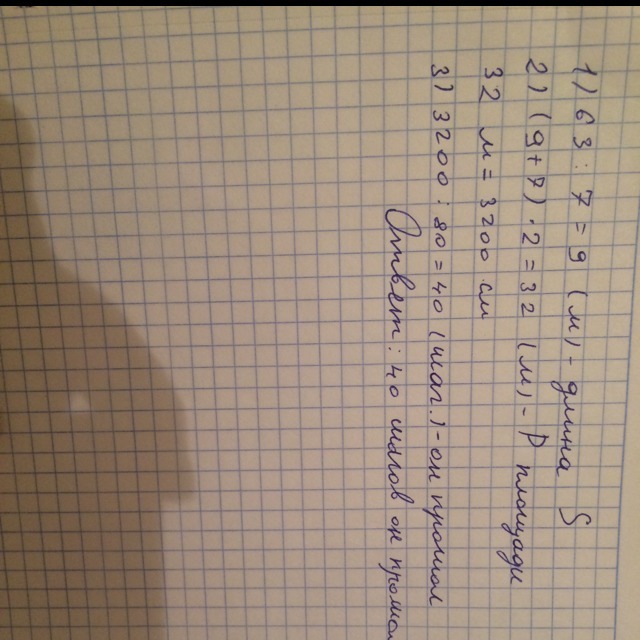 1) 63 : 7 = 9 (м) - длина S
2) (9+7) · 2 = 32 (м) - P площади
32 м = 3200 см
3) 3200 : 80 = 40 (шаг.) - он прошол
Ответ: 40 шагов он прошол